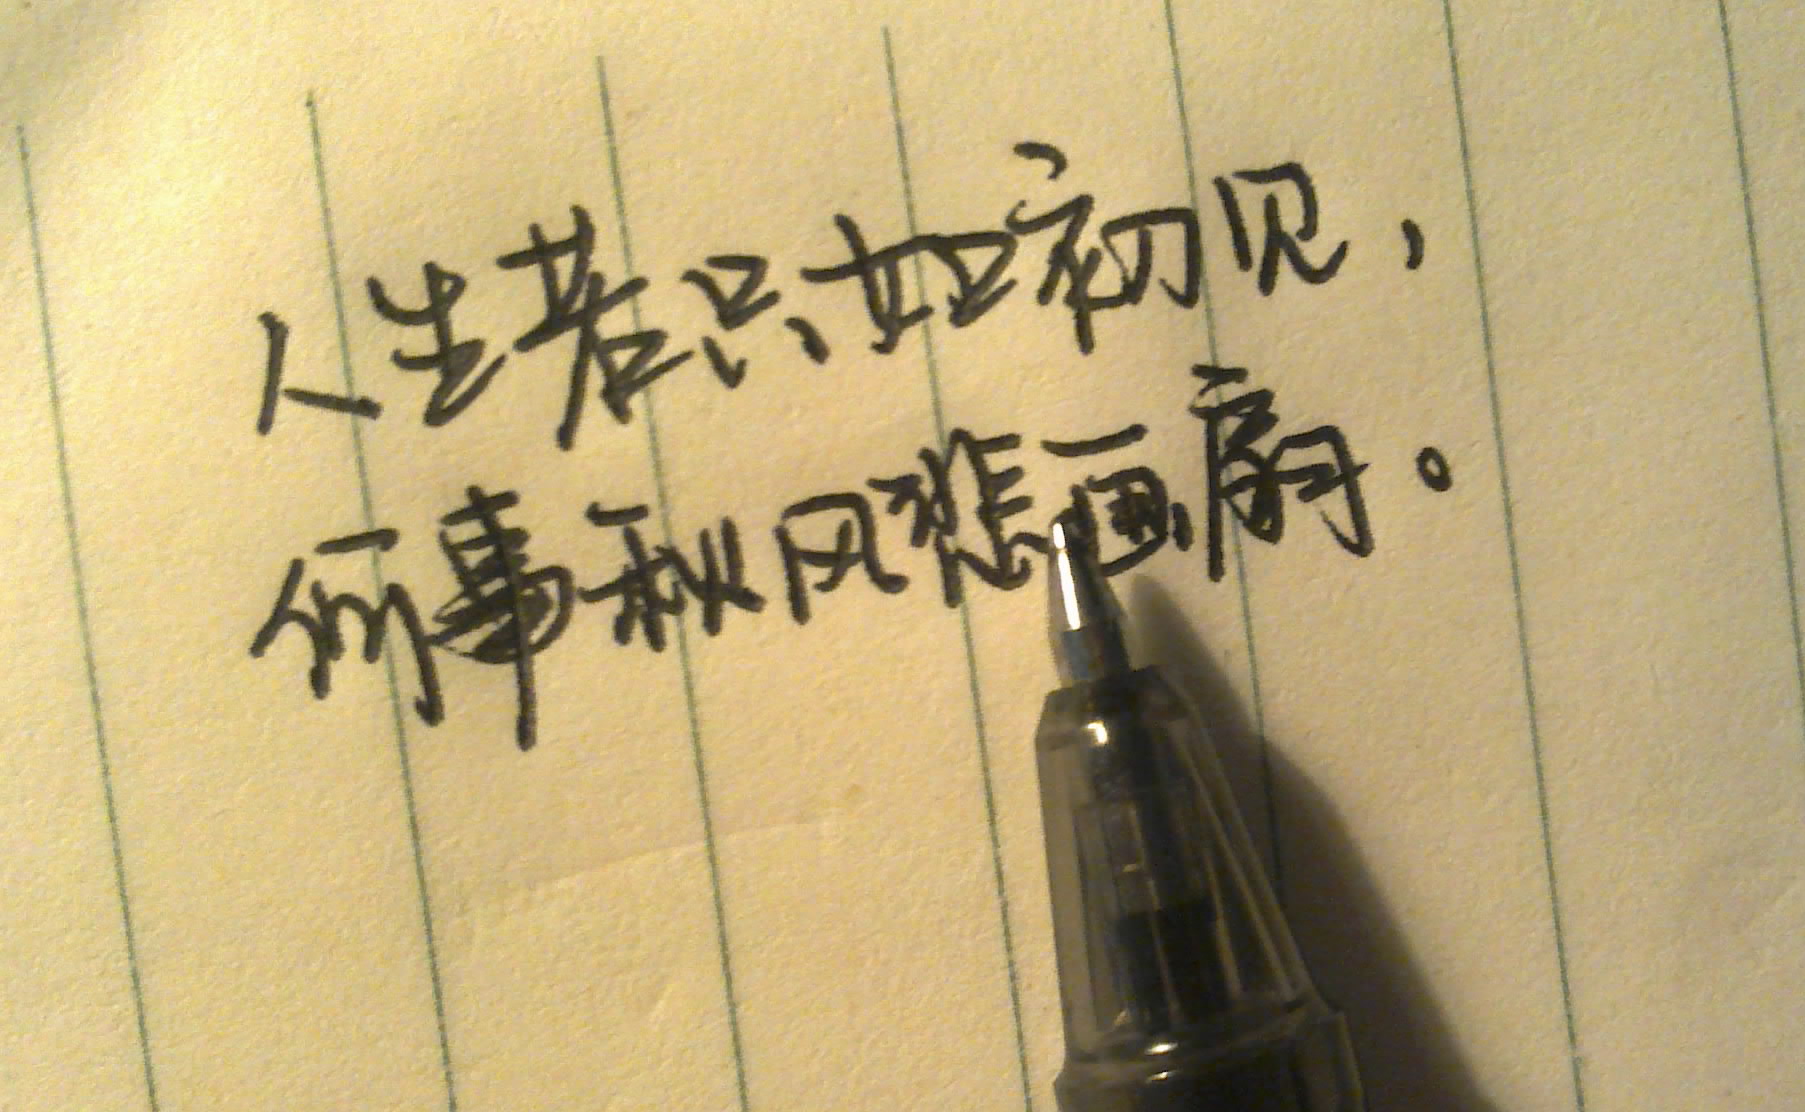 人生若只如初见，
何事秋风悲画扇。